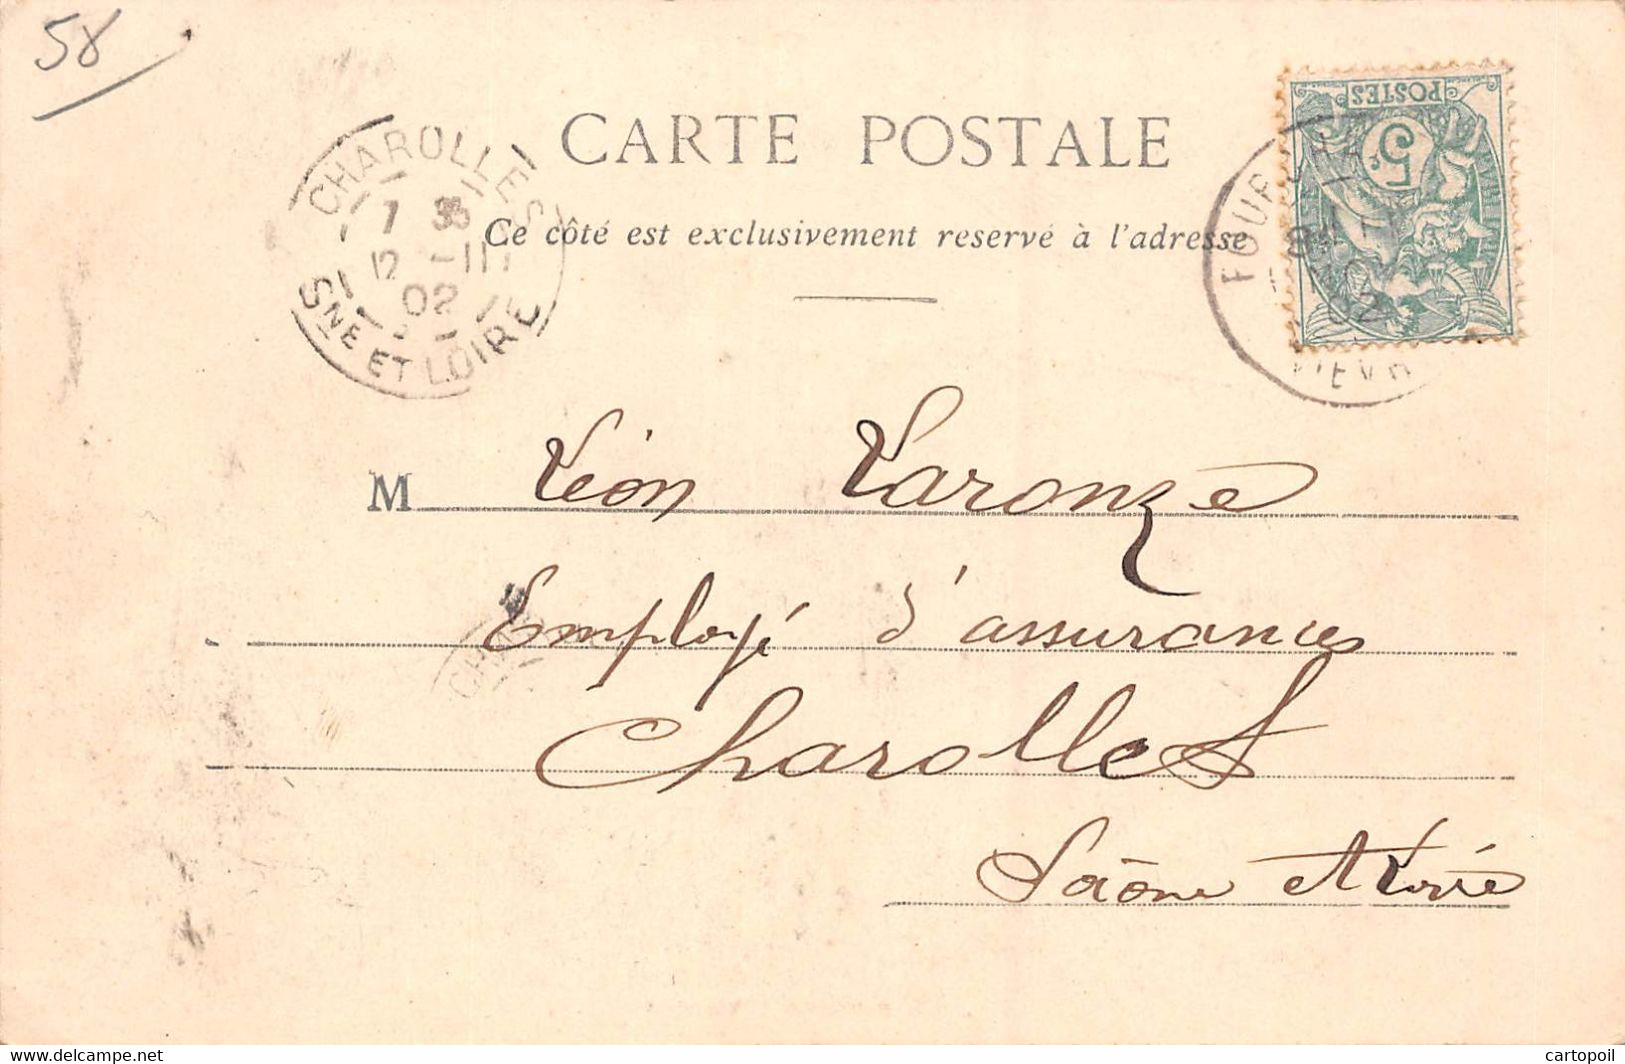 58
CARTE POSTALE
Ce côté est exclusivement reservé à l'adresse
CHAROLLES
7 35
12 -III
02
SNE ET LOIRE
POSTES
5
FOUR
02
NIEVR
M Léon Laronze
Employé d'assurances
Charolles
Saône et Loire
https://www.delcampe.net
cartopoil